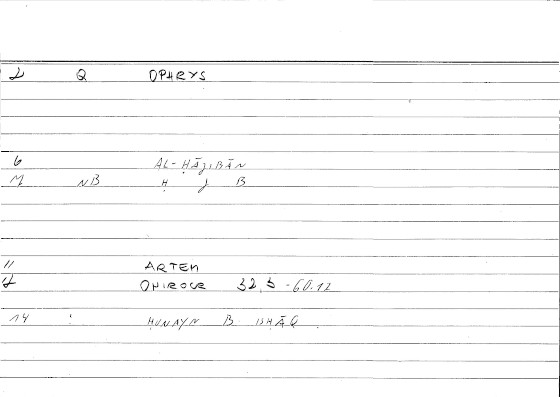 2 Q OPHRYS
6 AL-ḤĀJIBĀN
M NB Ḥ J B
11 ARTEM
12 ONIROCR 32,5 -60.12
14 : ḤUNAYN B ISḤĀQ